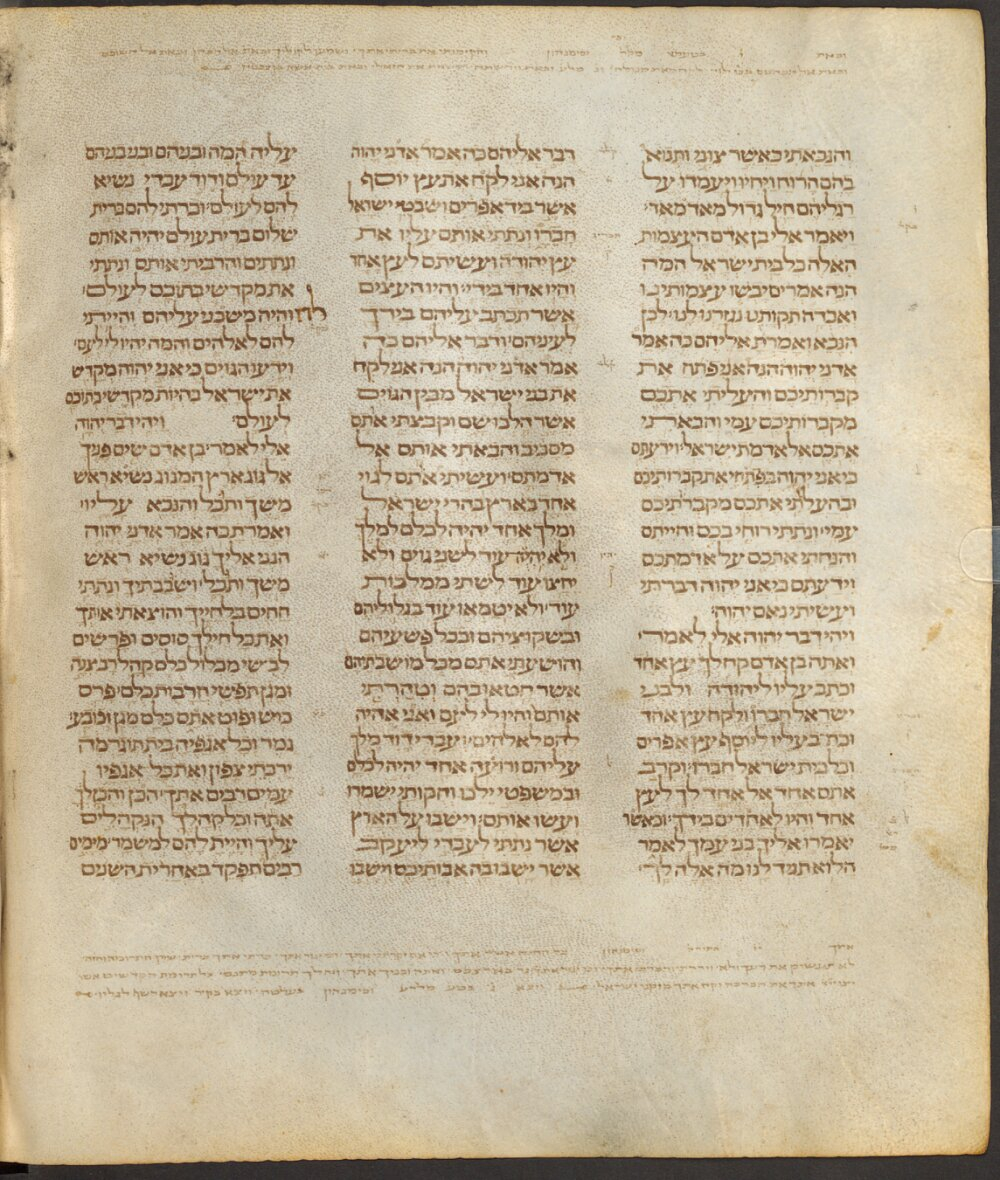 והנבאתי כאשר צוני ותבוא
בהם הרוח ויחיו ויעמדו על
רגליהם חיל גדול מאד מאד׃
ויאמר אלי בן אדם העצמות
האלה כל בית ישראל המה
הנה אמרים יבשו עצמותינו
ואבדה תקותנו נגזרנו לנו׃ לכן
הנבא ואמרת אליהם כה אמר
אדני יהוה הנה אני פתח את
קברותיכם והעליתי אתכם
מקברותיכם עמי והבאתי
אתכם אל אדמת ישראל׃ וידעתם
כי אני יהוה בפתחי את קברותיכם
ובהעלתי אתכם מקברותיכם
עמי׃ ונתתי רוחי בכם וחייתם
והנחתי אתכם על אדמתכם
וידעתם כי אני יהוה דברתי
ועשיתי נאם יהוה׃
ויהי דבר יהוה אלי לאמר׃
ואתה בן אדם קח לך עץ אחד
וכתב עליו ליהודה ולבני
ישראל חברו ולקח עץ אחד
וכתב עליו ליוסף עץ אפרים
וכל בית ישראל חברו׃ וקרב
אתם אחד אל אחד לך לעץ
אחד והיו לאחדים בידך׃ וכאשר
יאמרו אליך בני עמך לאמר
הלוא תגיד לנו מה אלה לך׃
דבר אליהם כה אמר אדני יהוה
הנה אני לקח את עץ יוסף
אשר ביד אפרים ושבטי ישראל
חברו ונתתי אותם עליו את
עץ יהודה ועשיתם לעץ אחד
והיו אחד בידי׃ והיו העצים
אשר תכתב עליהם בידך
לעיניהם׃ ודבר אליהם כה
אמר אדני יהוה הנה אני לקח
את בני ישראל מבין הגוים
אשר הלכו שם וקבצתי אתם
מסביב והבאתי אותם אל
אדמתם׃ ועשיתי אתם לגוי
אחד בארץ בהרי ישראל
ומלך אחד יהיה לכלם למלך
ולא יהיה עוד לשני גוים ולא
יחצו עוד לשתי ממלכות
עוד׃ ולא יטמאו עוד בגלוליהם
ובשקוציהם ובכל פשעיהם
והושעתי אתם מכל מושבתיהם
אשר חטאו בהם וטהרתי
אותם והיו לי לעם ואני אהיה
להם לאלהים׃ ועבדי דוד מלך
עליהם ורועה אחד יהיה לכלם
ובמשפטי ילכו וחקותי ישמרו
ועשו אותם׃ וישבו על הארץ
אשר נתתי לעבדי ליעקב
אשר ישבו בה אבותיכם וישבו
עליה המה ובניהם ובני בניהם
עד עולם ודוד עבדי נשיא
להם לעולם׃ וכרתי להם ברית
שלום ברית עולם יהיה אותם
ונתתים והרביתי אותם ונתתי
את מקדשי בתוכם לעולם׃
והיה משכני עליהם והייתי
להם לאלהים והמה יהיו לי לעם׃
וידעו הגוים כי אני יהוה מקדש
את ישראל בהיות מקדשי בתוכם
לעולם׃ ויהי דבר יהוה
אלי לאמר׃ בן אדם שים פניך
אל גוג ארץ המגוג נשיא ראש
משך ותבל והנבא עליו׃
ואמרת כה אמר אדני יהוה
הנני אליך גוג נשיא ראש
משך ותבל׃ ושבבתיך ונתתי
חחים בלחייך והוצאתי אותך
ואת כל חילך סוסים ופרשים
לבשי מכלול כלם קהל רב צנה
ומגן תפשי חרבות כלם׃ פרס
כוש ופוט אתם כלם מגן וכובע׃
גמר וכל אגפיה בית תוגרמה
ירכתי צפון ואת כל אגפיו
עמים רבים אתך׃ הכן והכן לך
אתה וכל קהלך הנקהלים
עליך והיית להם למשמר׃ מימים
רבים תפקד באחרית השנים